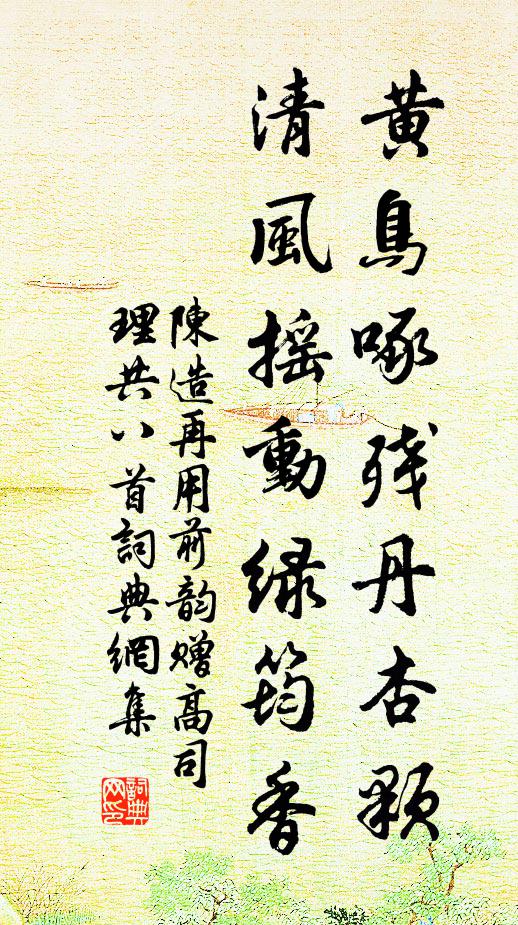 黄鳥啄残丹杏顆
清風摇動緑筠香
陳造再用前韵贈高司
理共八首詞典網集
詞典
网印